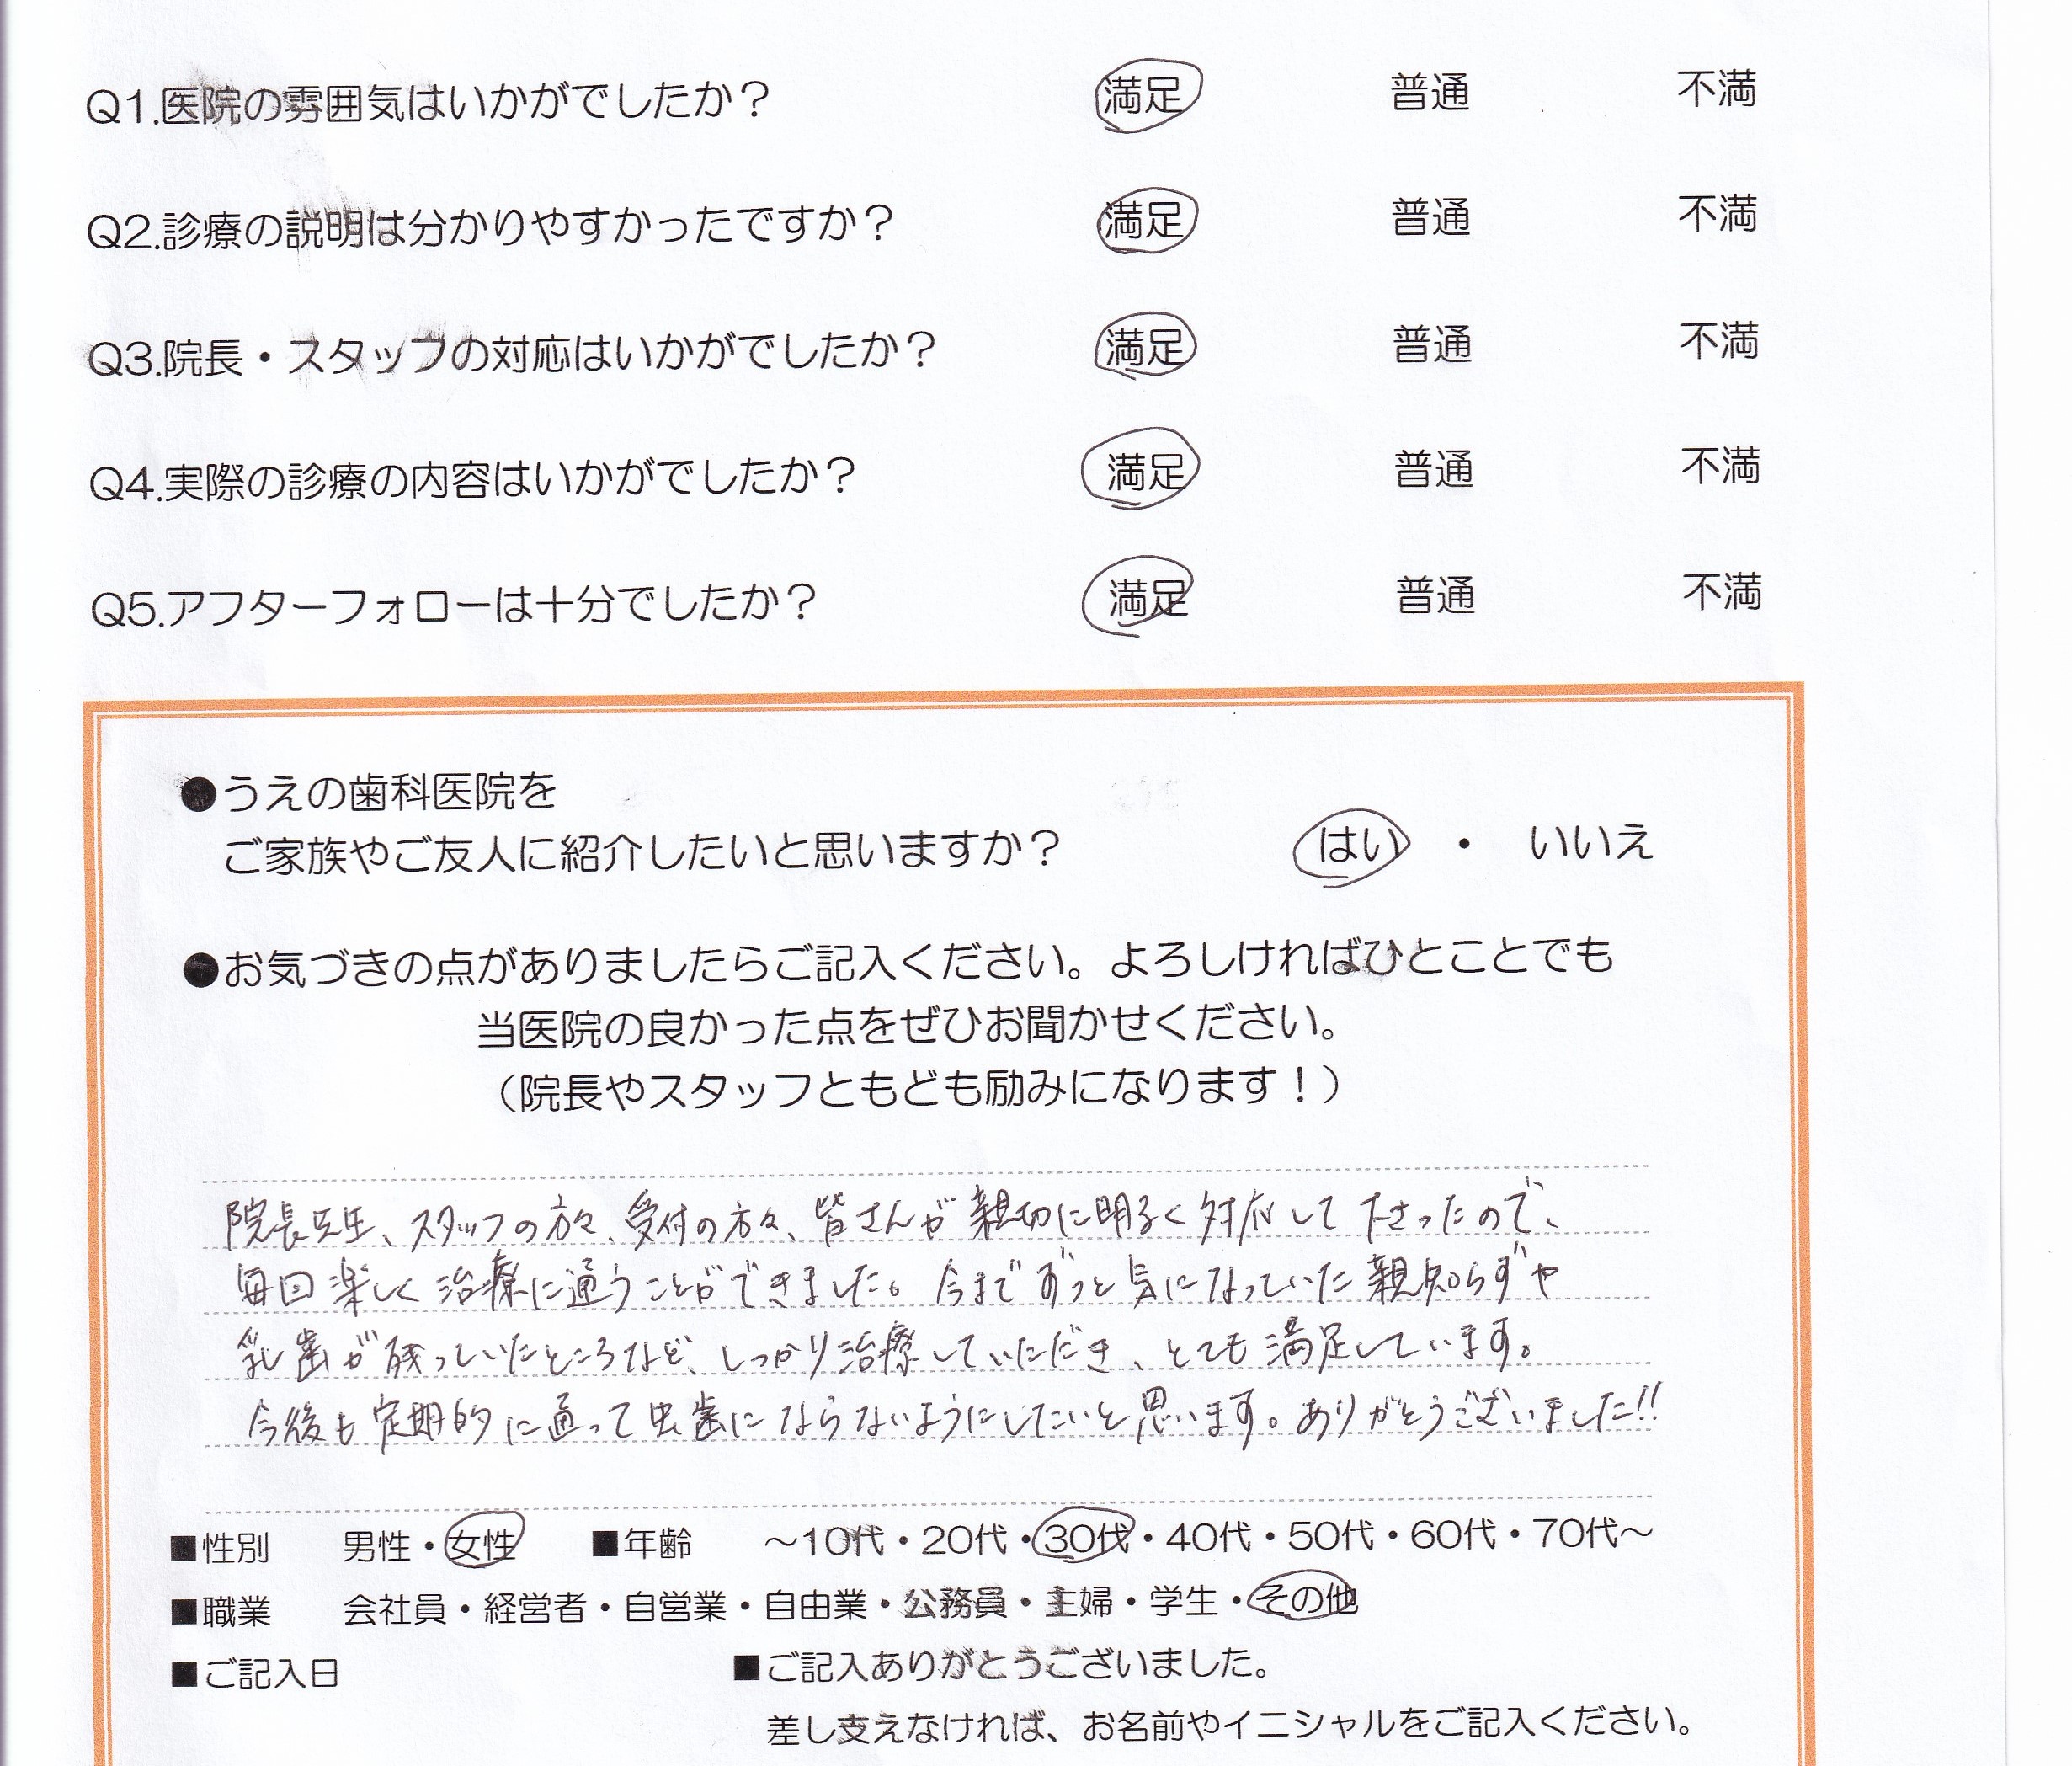 Q1.医院の雰囲気はいかがでしたか？ 満足 普通 不満
Q2.診療の説明は分かりやすかったですか？ 満足 普通 不満
Q3.院長・スタッフの対応はいかがでしたか？ 満足 普通 不満
Q4.実際の診療の内容はいかがでしたか？ 満足 普通 不満
Q5.アフターフォローは十分でしたか？ 満足 普通 不満
●うえの歯科医院を
ご家族やご友人に紹介したいと思いますか？ はい ・ いいえ
●お気づきの点がありましたらご記入ください。よろしければひとことでも
当医院の良かった点をぜひお聞かせください。
（院長やスタッフともども励みになります！）
院長先生、スタッフの方々、受付の方々、皆さんが親切に明るく対応して下さったので、
毎回楽しく治療に通うことができました。今までずっと気になっていた親知らずや
乳歯が残っていたところなど、しっかり治療していただき、とても満足しています。
今後も定期的に通って虫歯にならないようにしたいと思います。ありがとうございました!!
■性別 男性・女性 ■年齢 〜10代・20代・30代・40代・50代・60代・70代〜
■職業 会社員・経営者・自営業・自由業・公務員・主婦・学生・その他
■ご記入日 ■ご記入ありがとうございました。
差し支えなければ、お名前やイニシャルをご記入ください。